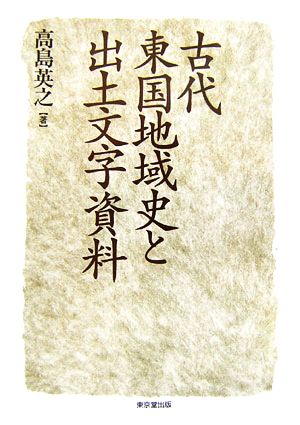 古代
東国地域史と
出土文字資料
高島英之【著】
東京堂出版